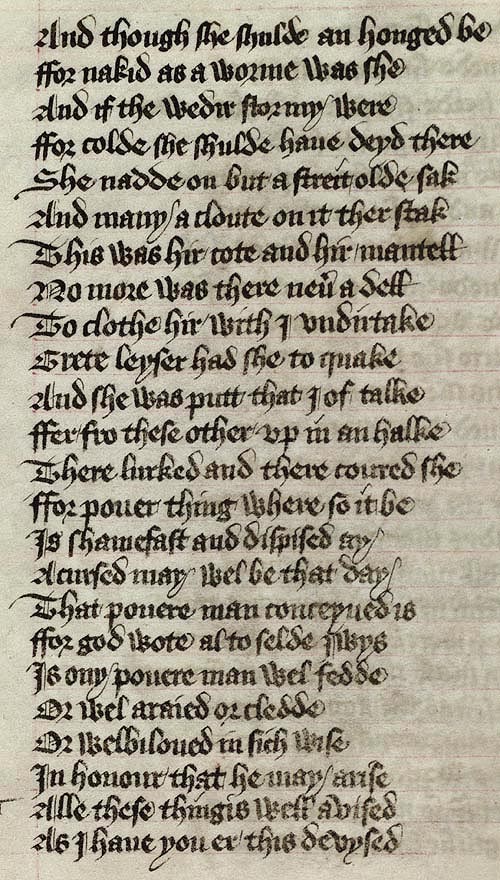 And though she shulde an honged be
ffor nakid as a worme was she
And if the wedir stormy were
ffor colde she shulde haue deyd there
She nadde on but a streit olde sak
And many a cloute on it ther stak
This was hir cote and hir mantell
No more was there neũ a dell
To clothe hir with I vndirtake
Grete leyser had she to quake
And she was putt that I of talke
ffer fro these other vp in an halke
There lurked and there coured she
ffor pouer thing where so it be
Is shamefast and dispised ay
Acursed may wel be that day
That pouere man conceyued is
ffor god wote al to selde iwys
Is ony pouere man wel fedde
Or wel araied or cledde
Or welbiloued in sich wise
In honour that he may arise
Alle these thingis well avised
As I haue you er this devysed